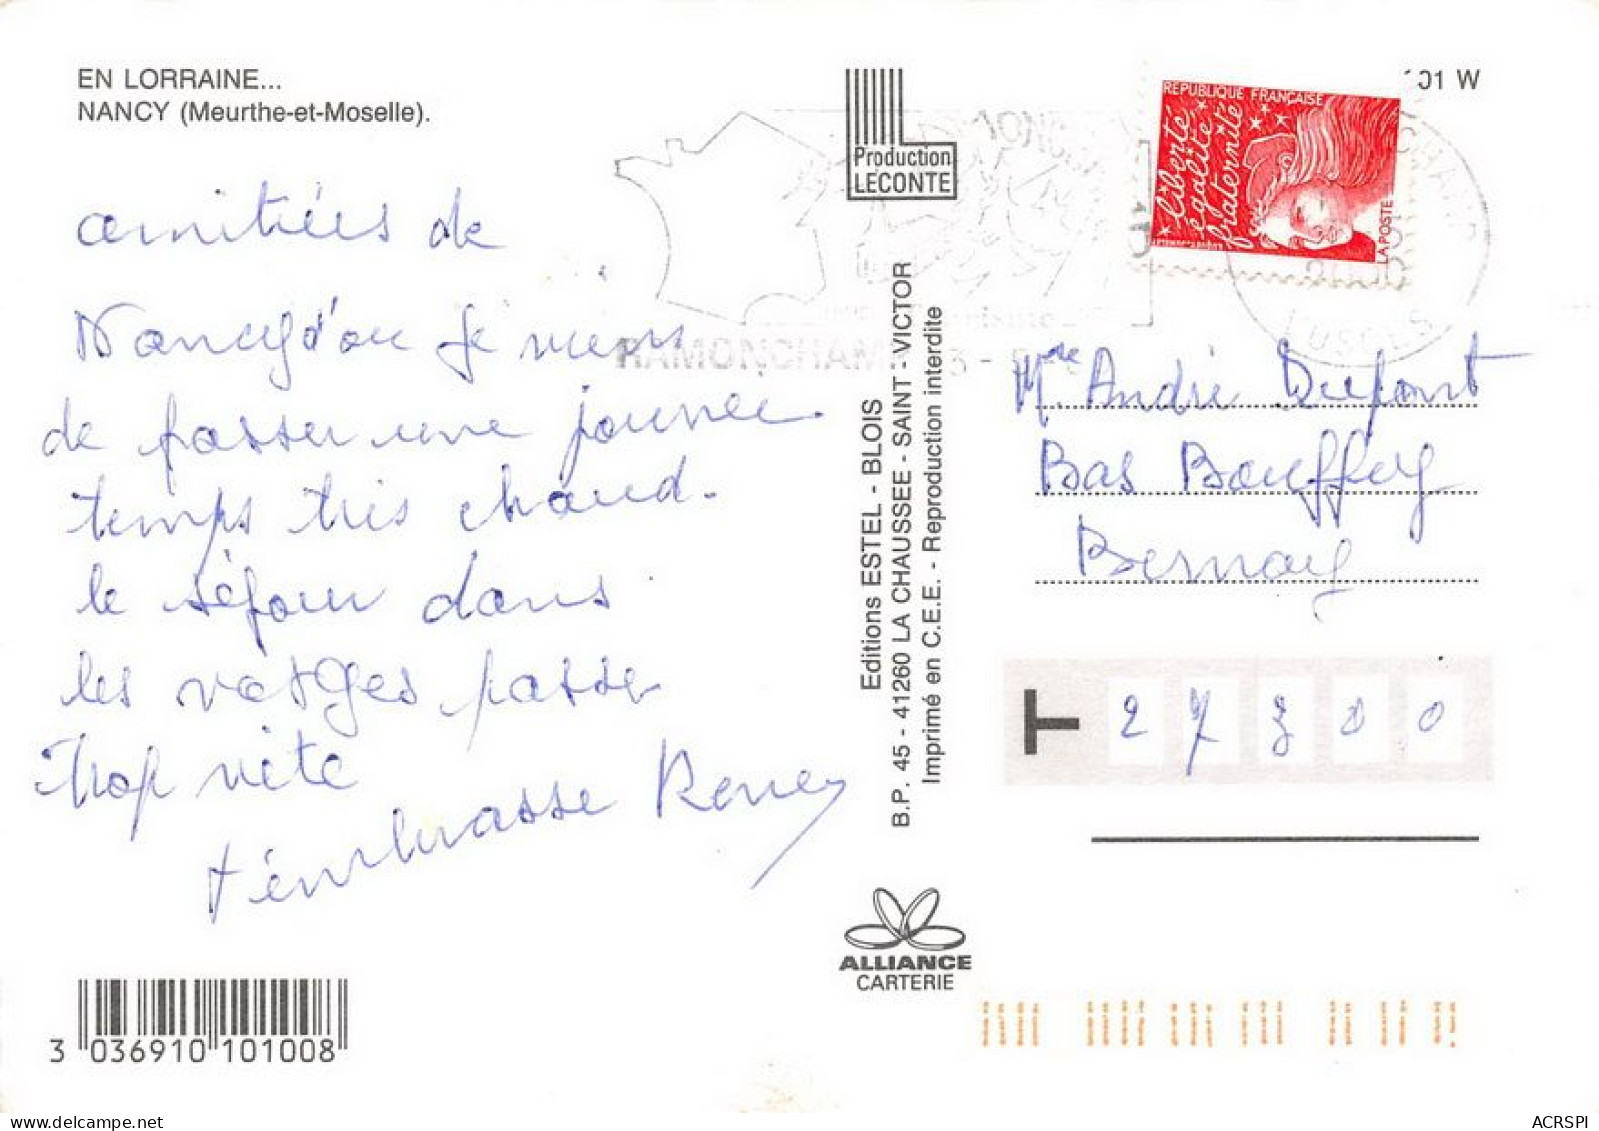 EN LORRAINE...
NANCY (Meurthe-et-Moselle).
amitiés de
Nancy d'ou je viens
de passer une journee
temps tres chaud.
le séjour dans
les vosges passe
trop vite
t'embrasse Renee
3 036910 101008
Production
LECONTE
RAMONCHAMP
Editions ESTEL - BLOIS
B.P. 45 - 41260 LA CHAUSSEE - SAINT - VICTOR
Imprimé en C.E.E. - Reproduction interdite
ALLIANCE
CARTERIE
01 W
REPUBLIQUE FRANÇAISE
Liberté
égalité
fraternité
LA POSTE
VOSGES
Mme André Dufont
Bas Bouffey
Bernay
T 27300
ACRSPI